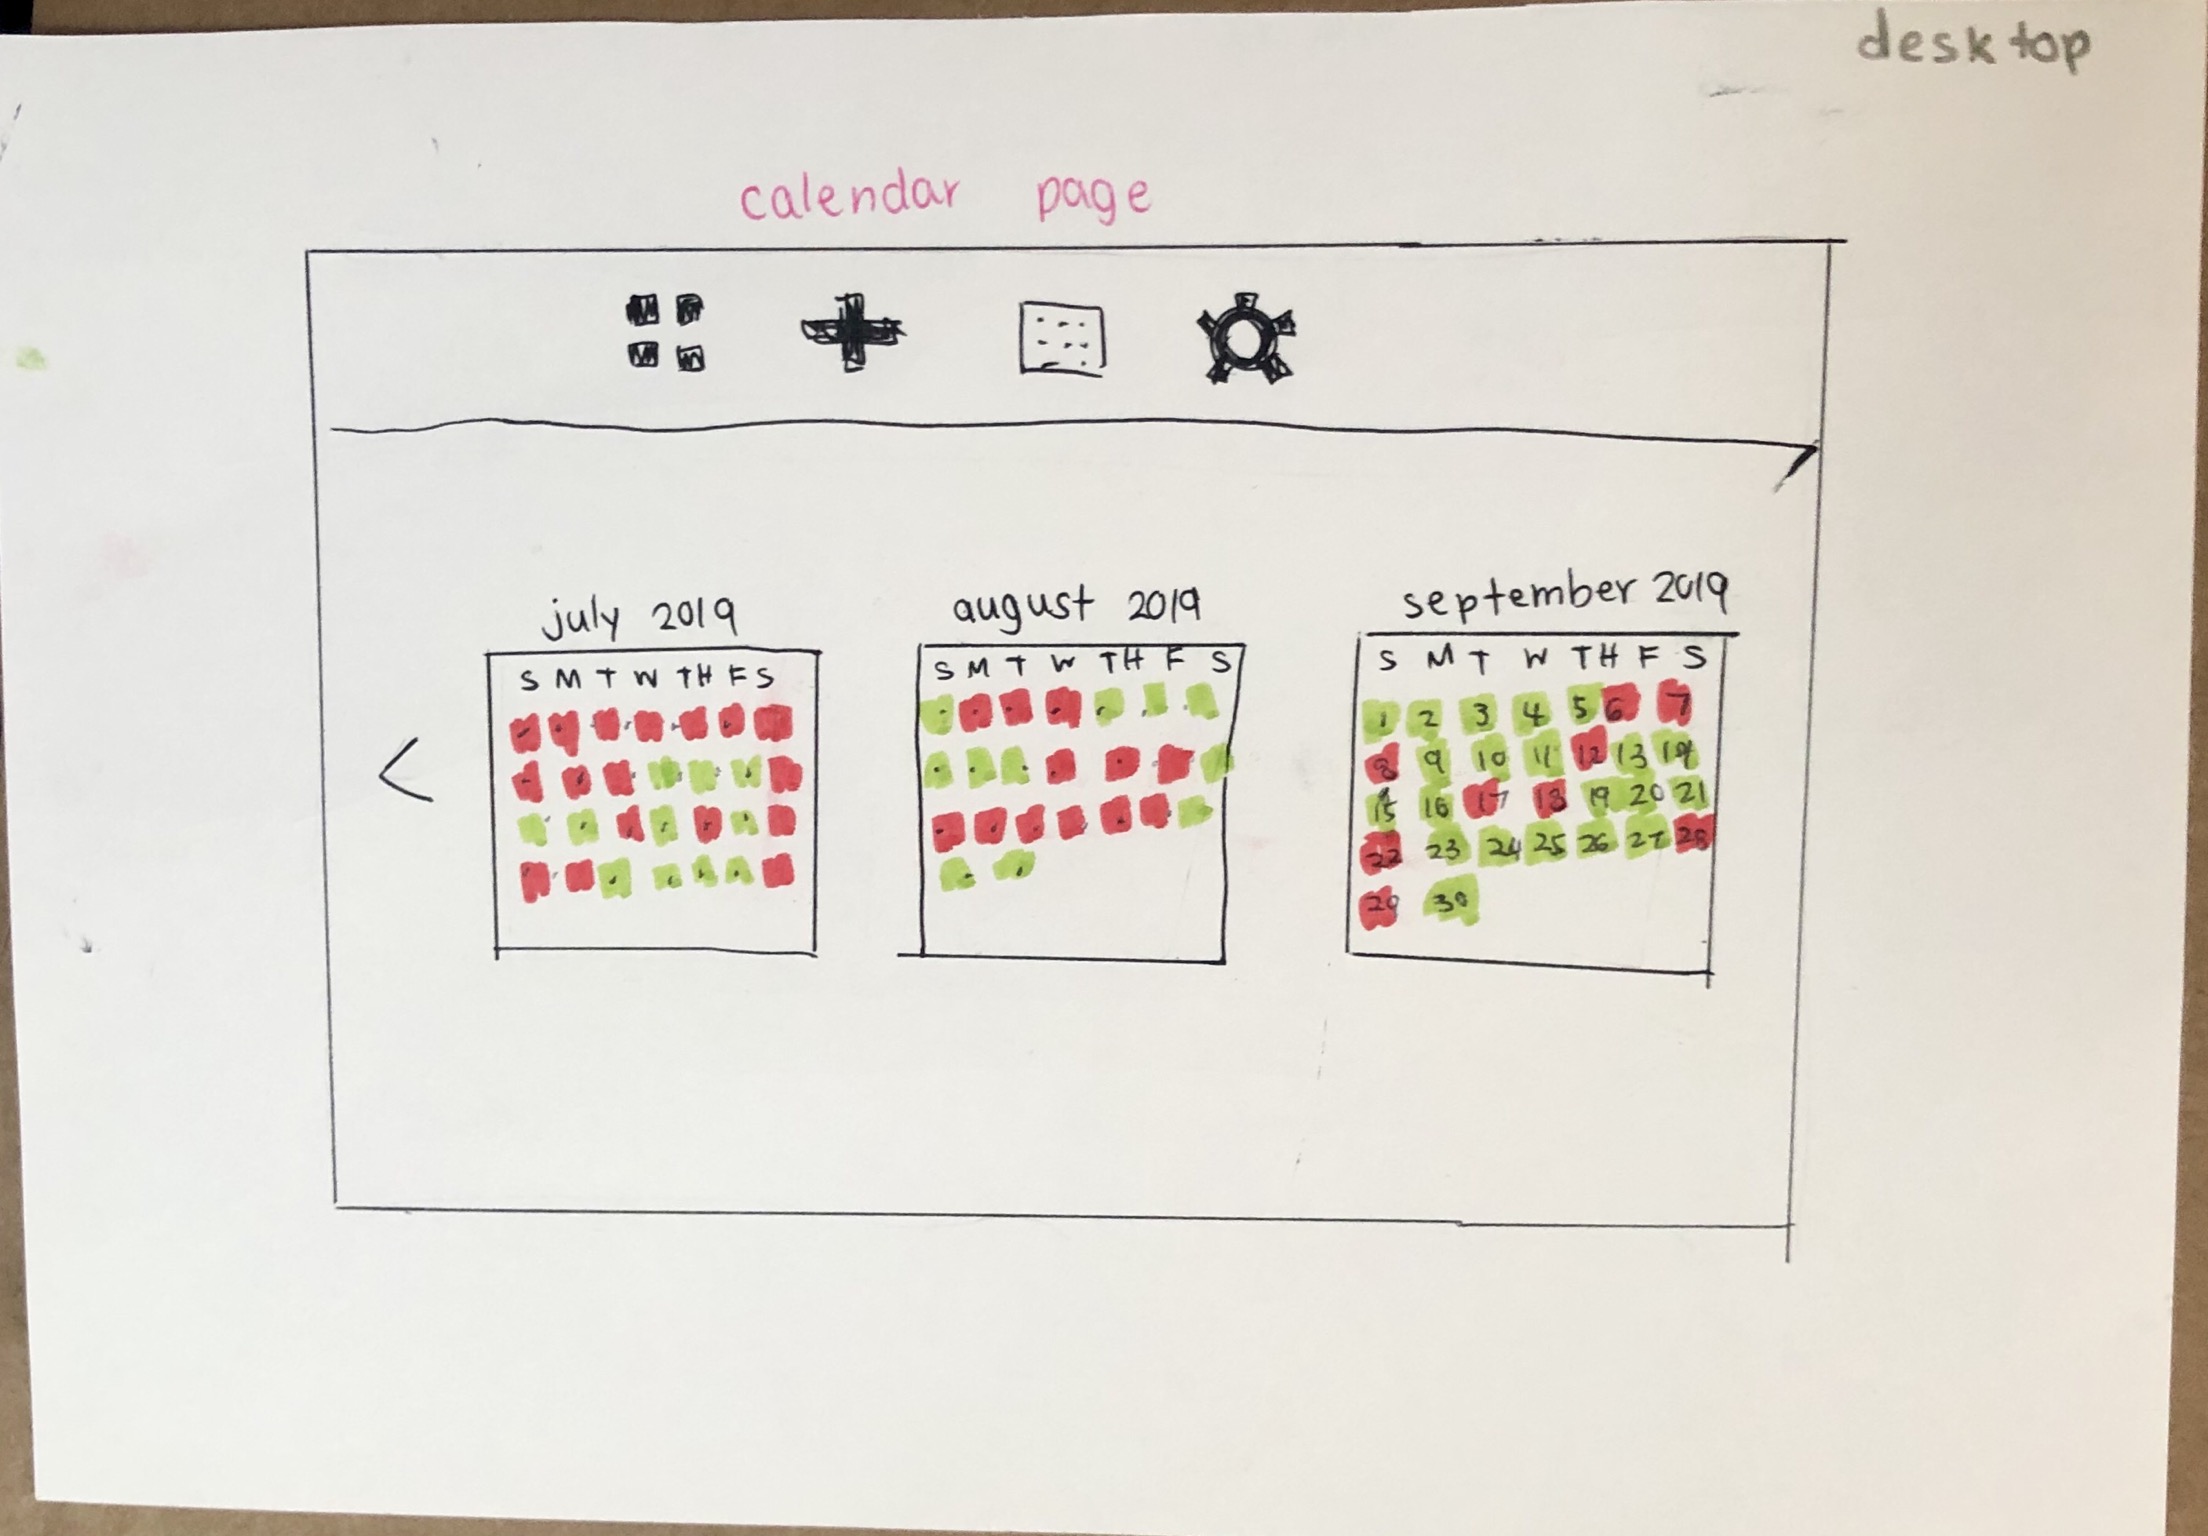 desktop
calendar page
july 2019
S M T W TH F S
august 2019
S M T W TH F S
september 2019
S M T W TH F S
1 2 3 4 5 6 7
8 9 10 11 12 13 14
15 16 17 18 19 20 21
22 23 24 25 26 27 28
29 30